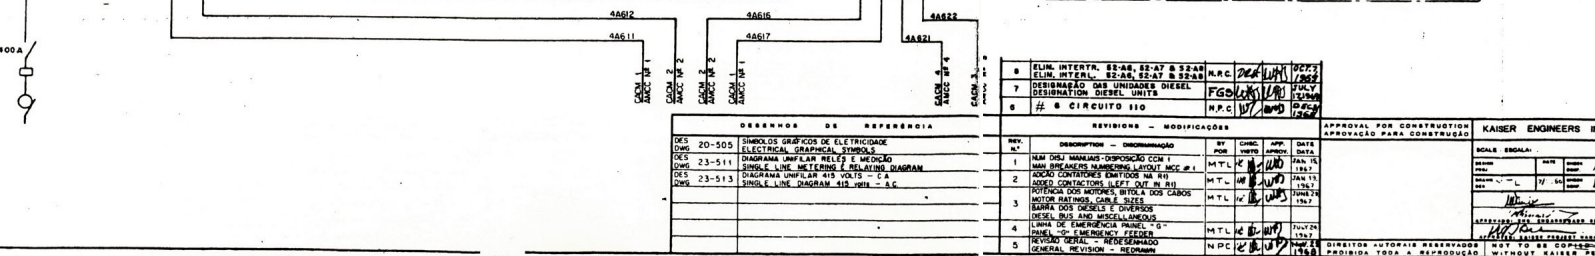 4A612
4A611
4A616
4A617
4A622
4A621
400A
CACM 1
AMCC Nº 1
CACM 2
AMCC Nº 2
CACM 2
AMCC Nº 2
CACM 1
AMCC Nº 1
CACM 4
AMCC Nº 4
CACM 3
DESENHOS DE REFERÊNCIA
DES
DWG 20-505
SÍMBOLOS GRÁFICOS DE ELETRICIDADE
ELECTRICAL GRAPHICAL SYMBOLS
DES
DWG 23-511
DIAGRAMA UNIFILAR RELÉS E MEDIÇÃO
SINGLE LINE METERING & RELAYING DIAGRAM
DES
DWG 23-513
DIAGRAMA UNIFILAR 415 VOLTS - CA
SINGLE LINE DIAGRAM 415 volts - A.C.
8 ELIN. INTERTR. 52-A6, 52-A7 & 52-A8
ELIN. INTERL. 52-A6, 52-A7 & 52-A8
N.P.C. OCT.7
7 DESIGNAÇÃO DAS UNIDADES DIESEL
DESIGNATION DIESEL UNITS
FGS JULY
6 # 6 CIRCUITO 110
N.P.C.
REVISIONS - MODIFICAÇÕES
REV. Nº DESCRIPTION - DISCRIMINAÇÃO BY POR CHKC. VISTO APP. APROV. DATE DATA
1 NUM DISJ MANUAIS-DISPOSIÇÃO CCM 1
MAN BREAKERS NUMBERING LAYOUT MCC # 1
MTL JAN 15, 1967
2 ADIÇÃO CONTATORES (OMITIDOS NA R1)
ADDED CONTACTORS (LEFT OUT IN R1)
MTL JAN 1967
3 POTÊNCIA DOS MOTORES, BITOLA DOS CABOS
MOTOR RATINGS, CABLE SIZES
BARRA DOS DIESELS E DIVERSOS
DIESEL BUS AND MISCELLANEOUS
MTL JUNE 1967
4 LINHA DE EMERGÊNCIA PAINEL "G"
PANEL "G" EMERGENCY FEEDER
MTL JULY 24 1967
5 REVISÃO GERAL - REDESENHADO
GENERAL REVISION - REDRAWN
NPC
APPROVAL FOR CONSTRUCTION
APROVAÇÃO PARA CONSTRUÇÃO
DIREITOS AUTORAIS RESERVADOS
PROIBIDA TODA A REPRODUÇÃO
KAISER ENGINEERS
SCALE - ESCALA:
NOT TO BE COPIED
WITHOUT KAISER